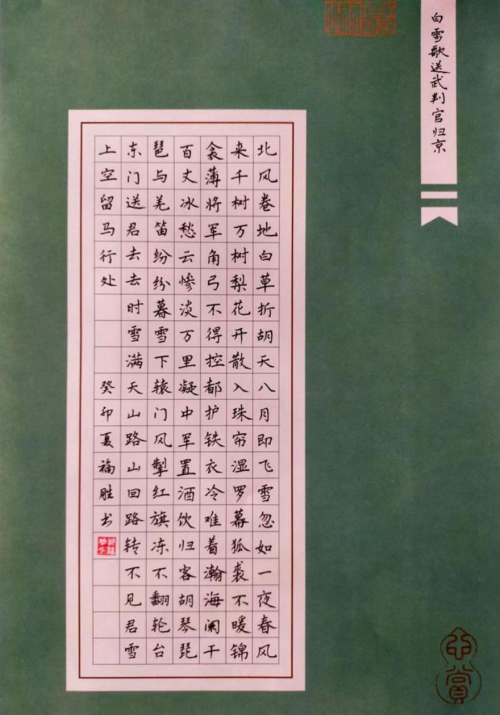 白雪歌送武判官归京
北风卷地白草折胡天八月即飞雪忽如一夜春风
来千树万树梨花开散入珠帘湿罗幕狐裘不暖锦
衾薄将军角弓不得控都护铁衣冷难着瀚海阑干
百丈冰愁云惨淡万里凝中军置酒饮归客胡琴琵
琶与羌笛纷纷暮雪下辕门风掣红旗冻不翻轮台
东门送君去去时雪满天山路山回路转不见君雪
上空留马行处 癸卯夏福胜书